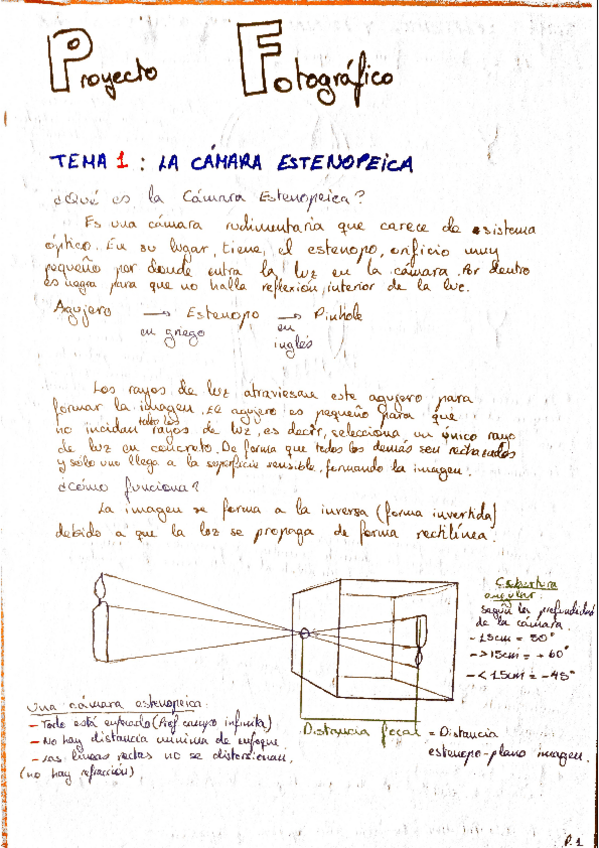 Proyecto Fotográfico
TEMA 1 : LA CÁMARA ESTENOPEICA
¿Qué es la Cámara Estenopeica?
Es una cámara rudimentaria que carece de sistema
óptico. En su lugar, tiene, el estenopo, orificio muy
pequeño por donde entra la luz en la cámara. Por dentro
es negra para que no halla reflexión interior de la luz.
Agujero → Estenopo → Pinhole
en griego
en inglés
Los rayos de luz atraviesan este agujero para
formar la imagen. El agujero es pequeño para que
no incidan todos los rayos de luz, es decir, selecciona un único rayo
de luz en concreto. De forma que todos los demás son rechazados
y sólo uno llega a la superficie sensible, formando la imagen.
¿Cómo funciona?
La imagen se forma a la inversa (forma invertida)
debido a que la luz se propaga de forma rectilínea.
Cobertura
angular:
según la profundidad
de la cámara.
- 15cm = 50°
- >15cm = + 60°
- < 15cm = -45°
Una cámara estenopeica:
- Todo está enfocado (Prof campo infinita)
- No hay distancia mínima de enfoque.
- Las líneas rectas no se distorsionan,
(no hay refracción)
Distancia focal = Distancia
estenopo-plano imagen.
P. 1